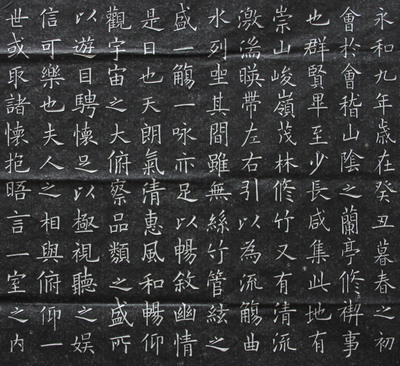 永和九年歲在癸丑暮春之初
會於會稽山陰之蘭亭修禊事
也群賢畢至少長咸集此地有
崇山峻嶺茂林修竹又有清流
激湍暎帶左右引以為流觴曲
水列坐其間雖無絲竹管絃之
盛一觴一咏亦足以暢敘幽情
是日也天朗氣清惠風和暢仰
觀宇宙之大俯察品類之盛所
以遊目騁懷足以極視聽之娱
信可樂也夫人之相與俯仰一
世或取諸懷抱晤言一室之内